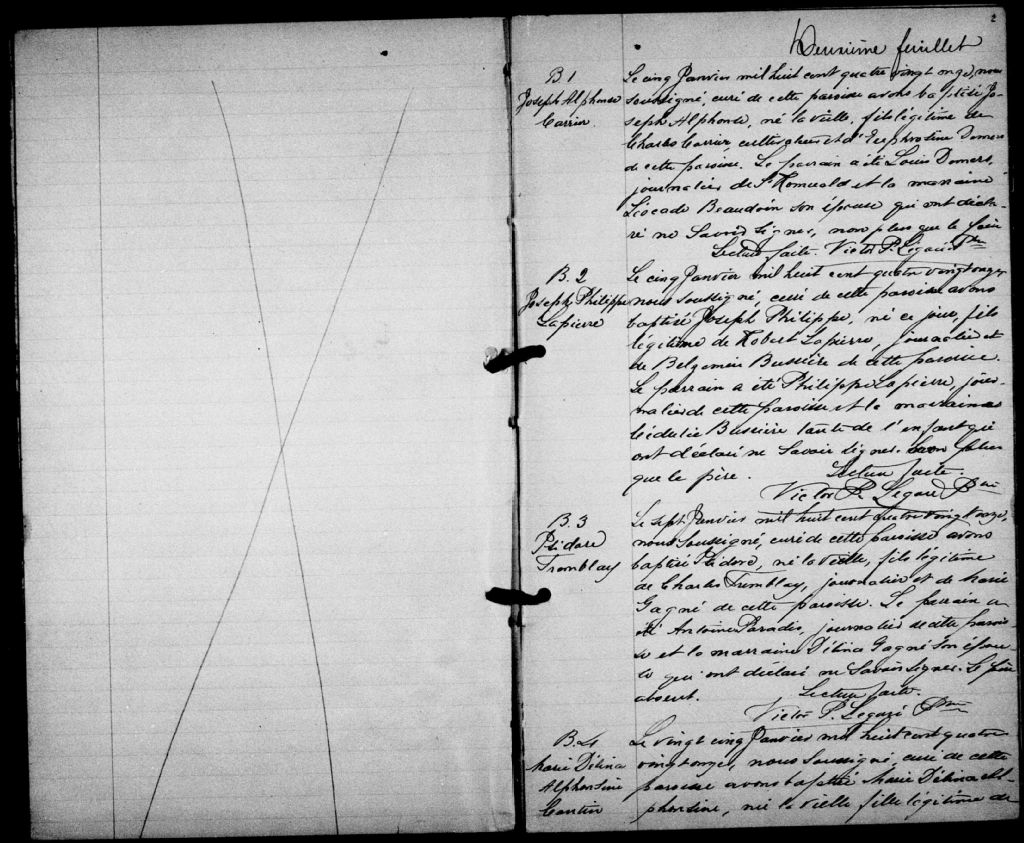 2
Deuxième feuillet
B 1
Joseph Alphonse
Carrier
Le cinq Janvier mil huit cent quatre vingt onze, nous
soussigné, curé de cette paroisse avons baptisé Jo-
seph Alphonse, né la veille, fils légitime de
Charles Carrier cultivateur et d'Euphrosine Demers
de cette paroisse. Le parrain a été Louis Demers,
journalier de St Romuald et la marraine
Léocade Beaudoin son épouse qui ont décla-
ré ne savoir signer, non plus que le père
Lecture faite. Victor P. Légaré Ptre
B. 2
Joseph Philippe
Lapierre
Le cinq Janvier mil huit cent quatre vingt onze
nous soussigné, curé de cette paroisse avons
baptisé Joseph Philippe, né ce jour, fils
légitime de Robert Lapierre, journalier et
de Bussière de cette paroisse.
Le parrain a été Philippe Lapierre, jour-
nalier de cette paroisse et la marraine
Zédulie Bussière tante de l'enfant qui
ont déclaré ne savoir signer. non plus
que le père. Lecture faite.
Victor P. Légaré Ptre
B. 3
Tremblay
Le sept Janvier mil huit cent quatre vingt onze,
nous soussigné, curé de cette paroisse avons
baptisé né la veille, fils légitime
de Charles Tremblay, journalier et de Marie
Gagné de cette paroisse. Le parrain a
été Antoine Paradis, journalier de cette parois-
se et la marraine Délina Gagné son épou-
se qui ont déclaré ne savoir signer. Le père
absent. Lecture faite.
Victor P. Légaré Ptre
B. 4
Marie Délina
Alphonsine
Cantin
Le vingt cinq Janvier mil huit cent quatre
vingt onze, nous soussigné, curé de cette
paroisse avons baptisé Marie Délina Al-
phonsine, née la veille fille légitime de